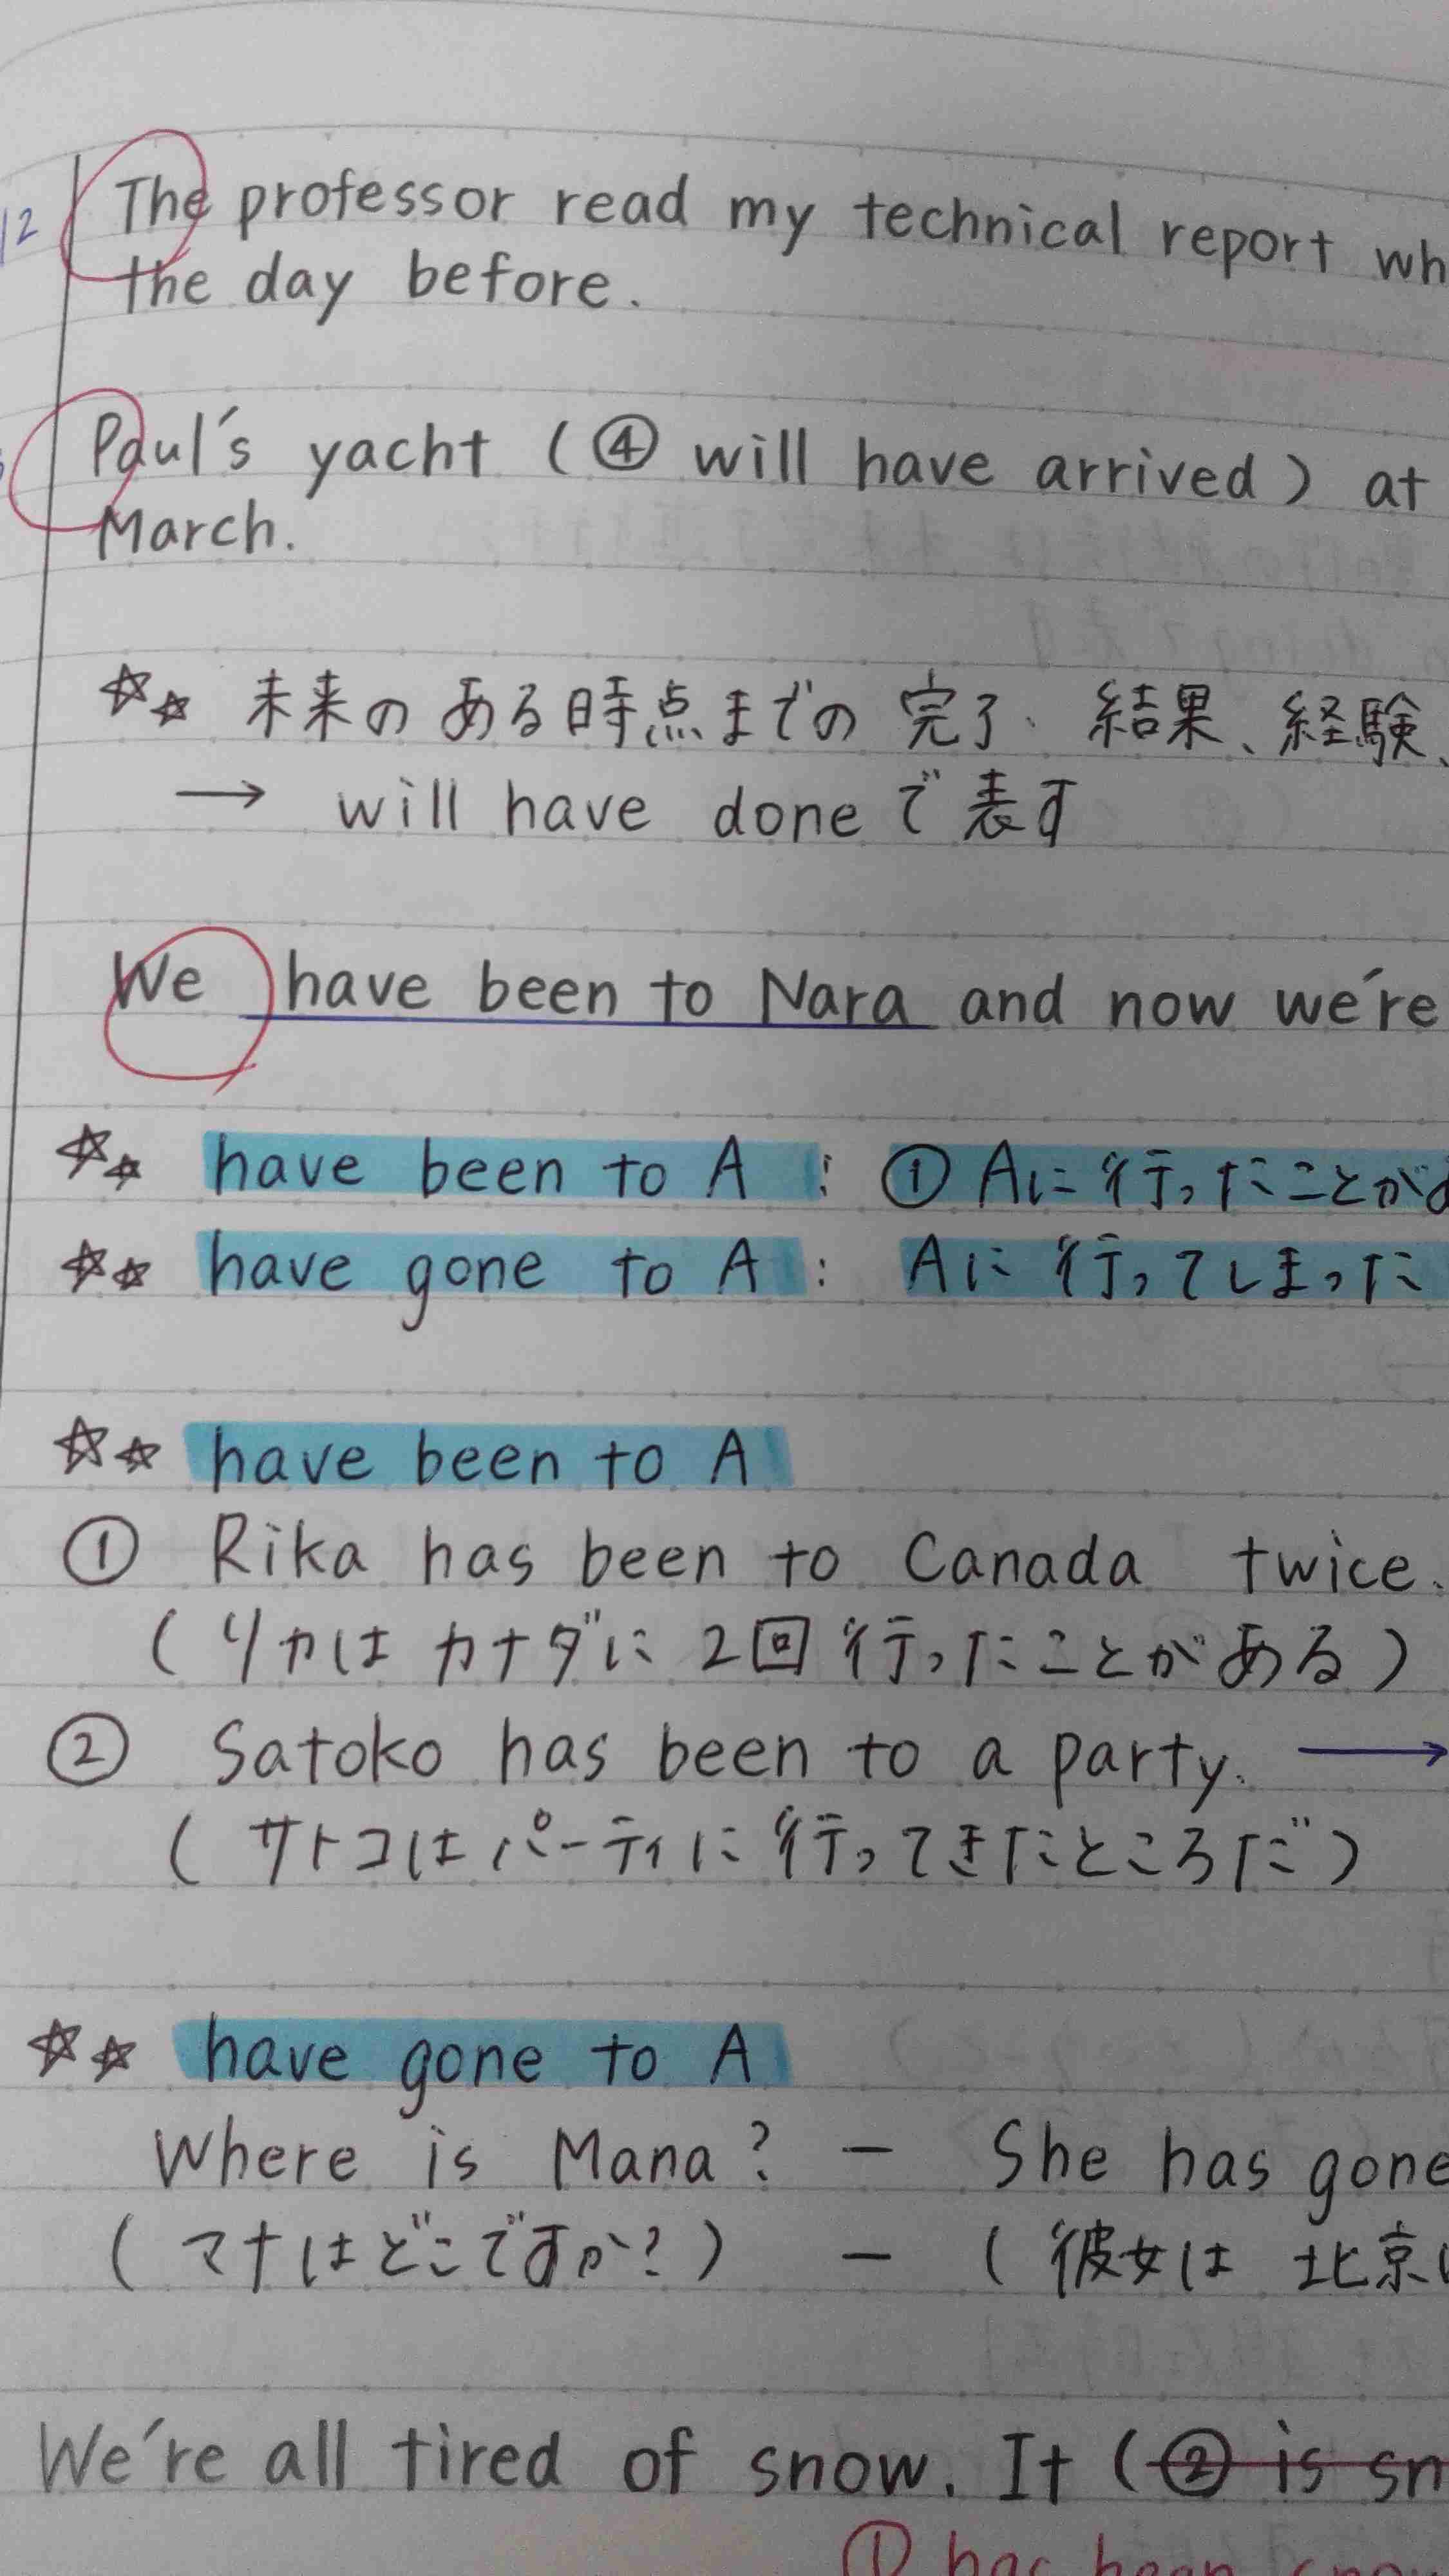 12 The professor read my technical report wh
the day before.
Paul's yacht (④ will have arrived) at
March.
☆☆ 未来のある時点までの完了、結果、経験、
→ will have doneで表す
We have been to Nara and now we're
☆☆ have been to A : ① Aに行ったことがあ
☆☆ have gone to A : Aに行ってしまった
☆☆ have been to A
① Rika has been to Canada twice.
(リカはカナダに2回行ったことがある)
② Satoko has been to a party. →
(サトコはパーティに行ってきたところだ)
☆☆ have gone to A
Where is Mana? — She has gone
(マナはどこですか?) — (彼女は北京に
We're all tired of snow. It (② is sn
① has been